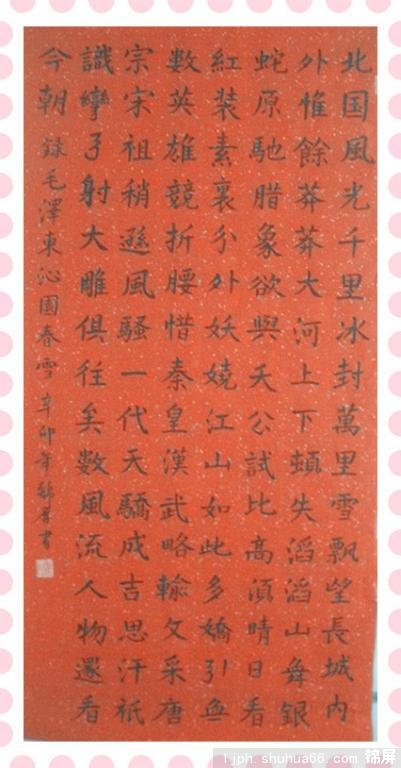 北国風光千里冰封萬里雪飄望長城内
外惟餘莽莽大河上下頓失滔滔山舞銀
蛇原馳腊象欲與天公試比高須晴日看
紅装素裹分外妖嬈江山如此多嬌引無
數英雄競折腰惜秦皇漢武略輸文采唐
宗宋祖稍遜風騷一代天驕成吉思汗祗
識彎弓射大雕俱往矣數風流人物還看
今朝 録毛澤東沁園春雪 辛卯年錦屏書
ljph.shuhua66.com 锦屏